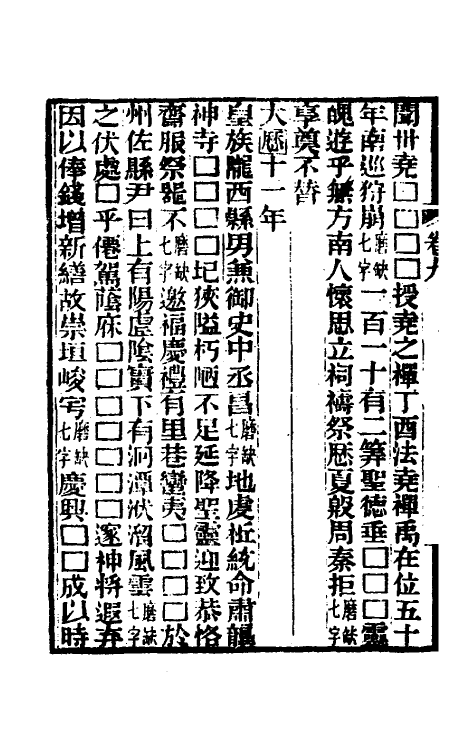 聞丗堯□□□□授堯之禪丁酉法堯禪禹在位五十
年南巡狩崩磨缺七字一百一十有二筭聖德垂□□□靈
魄遊乎無方南人懷思立祠禱祭厯夏殷周秦拒磨缺七字
享奠不替
大曆十一年
皇族隴西縣男兼御史中丞昌磨缺七字地虔祉統命肅龔
神寺□□□□圮狹隘朽陋不足延降聖靈迎致恭恪
齋服祭器不磨缺七字邀福慶禮有里巷蠻夷□□□□於
州佐縣尹曰上有陽虛陰竇下有洞潭洑溜風雲磨缺七字
之伏處□乎僊駕蔭庥□□□□□邃神將遐弃
因以俸錢增新繕故崇垣峻宇磨缺七字慶興□□成以時
卷九